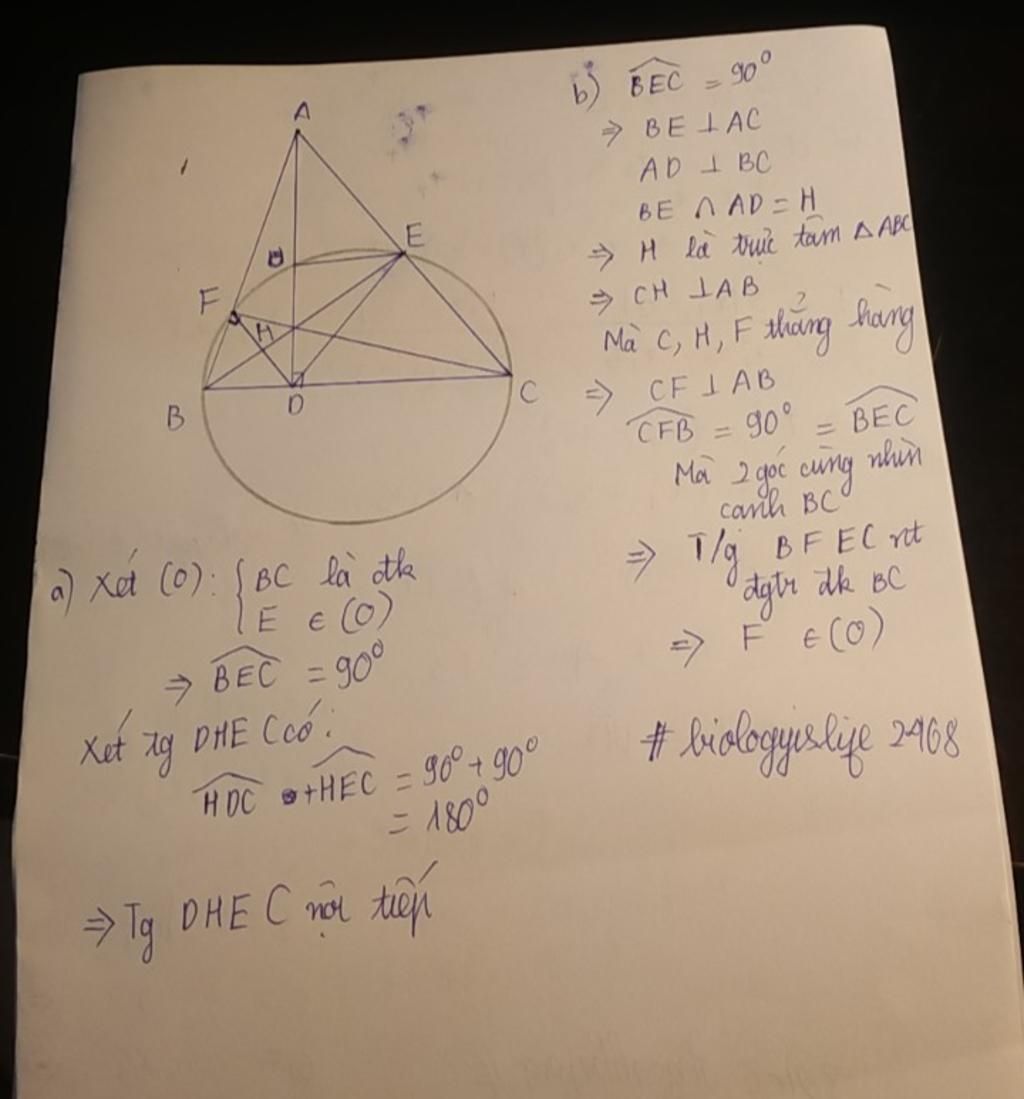 A
E
F
H
B
D
C
a) Xét (O): { BC là đk
E ∈ (O)
⇒ BEC = 90°
Xét tg DHEC có:
HDC + HEC = 90° + 90°
= 180°
⇒ Tg DHEC nội tiếp
b) BEC = 90°
⇒ BE ⊥ AC
AD ⊥ BC
BE ∩ AD = H
⇒ H là trực tâm △ABC
⇒ CH ⊥ AB
Mà C, H, F thẳng hàng
⇒ CF ⊥ AB
CFB = 90° = BEC
Mà 2 góc cùng nhìn
cạnh BC
⇒ T/g BFEC nt
đgtr đk BC
⇒ F ∈ (O)
# biologyislife 2968